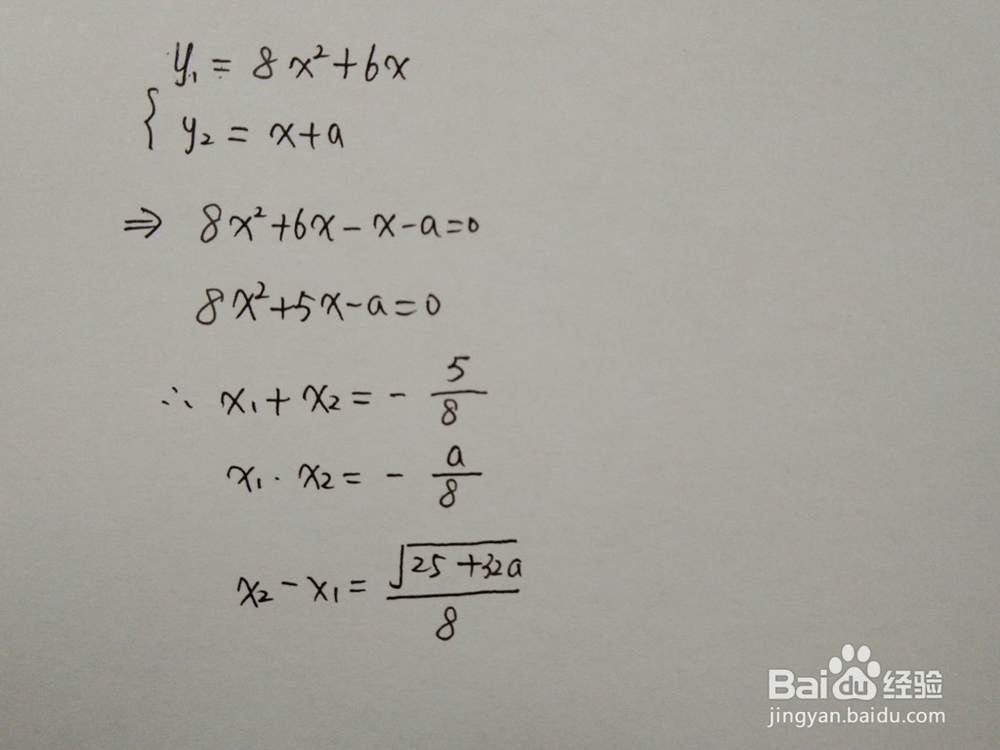 y₁ = 8x²+6x
{ y₂ = x+a
⇒ 8x²+6x-x-a=0
8x²+5x-a=0
∴ x₁+x₂=-5/8
x₁·x₂=-a/8
x₂-x₁=√(25+32a)/8
Baidu经验
jingyan.baidu.com